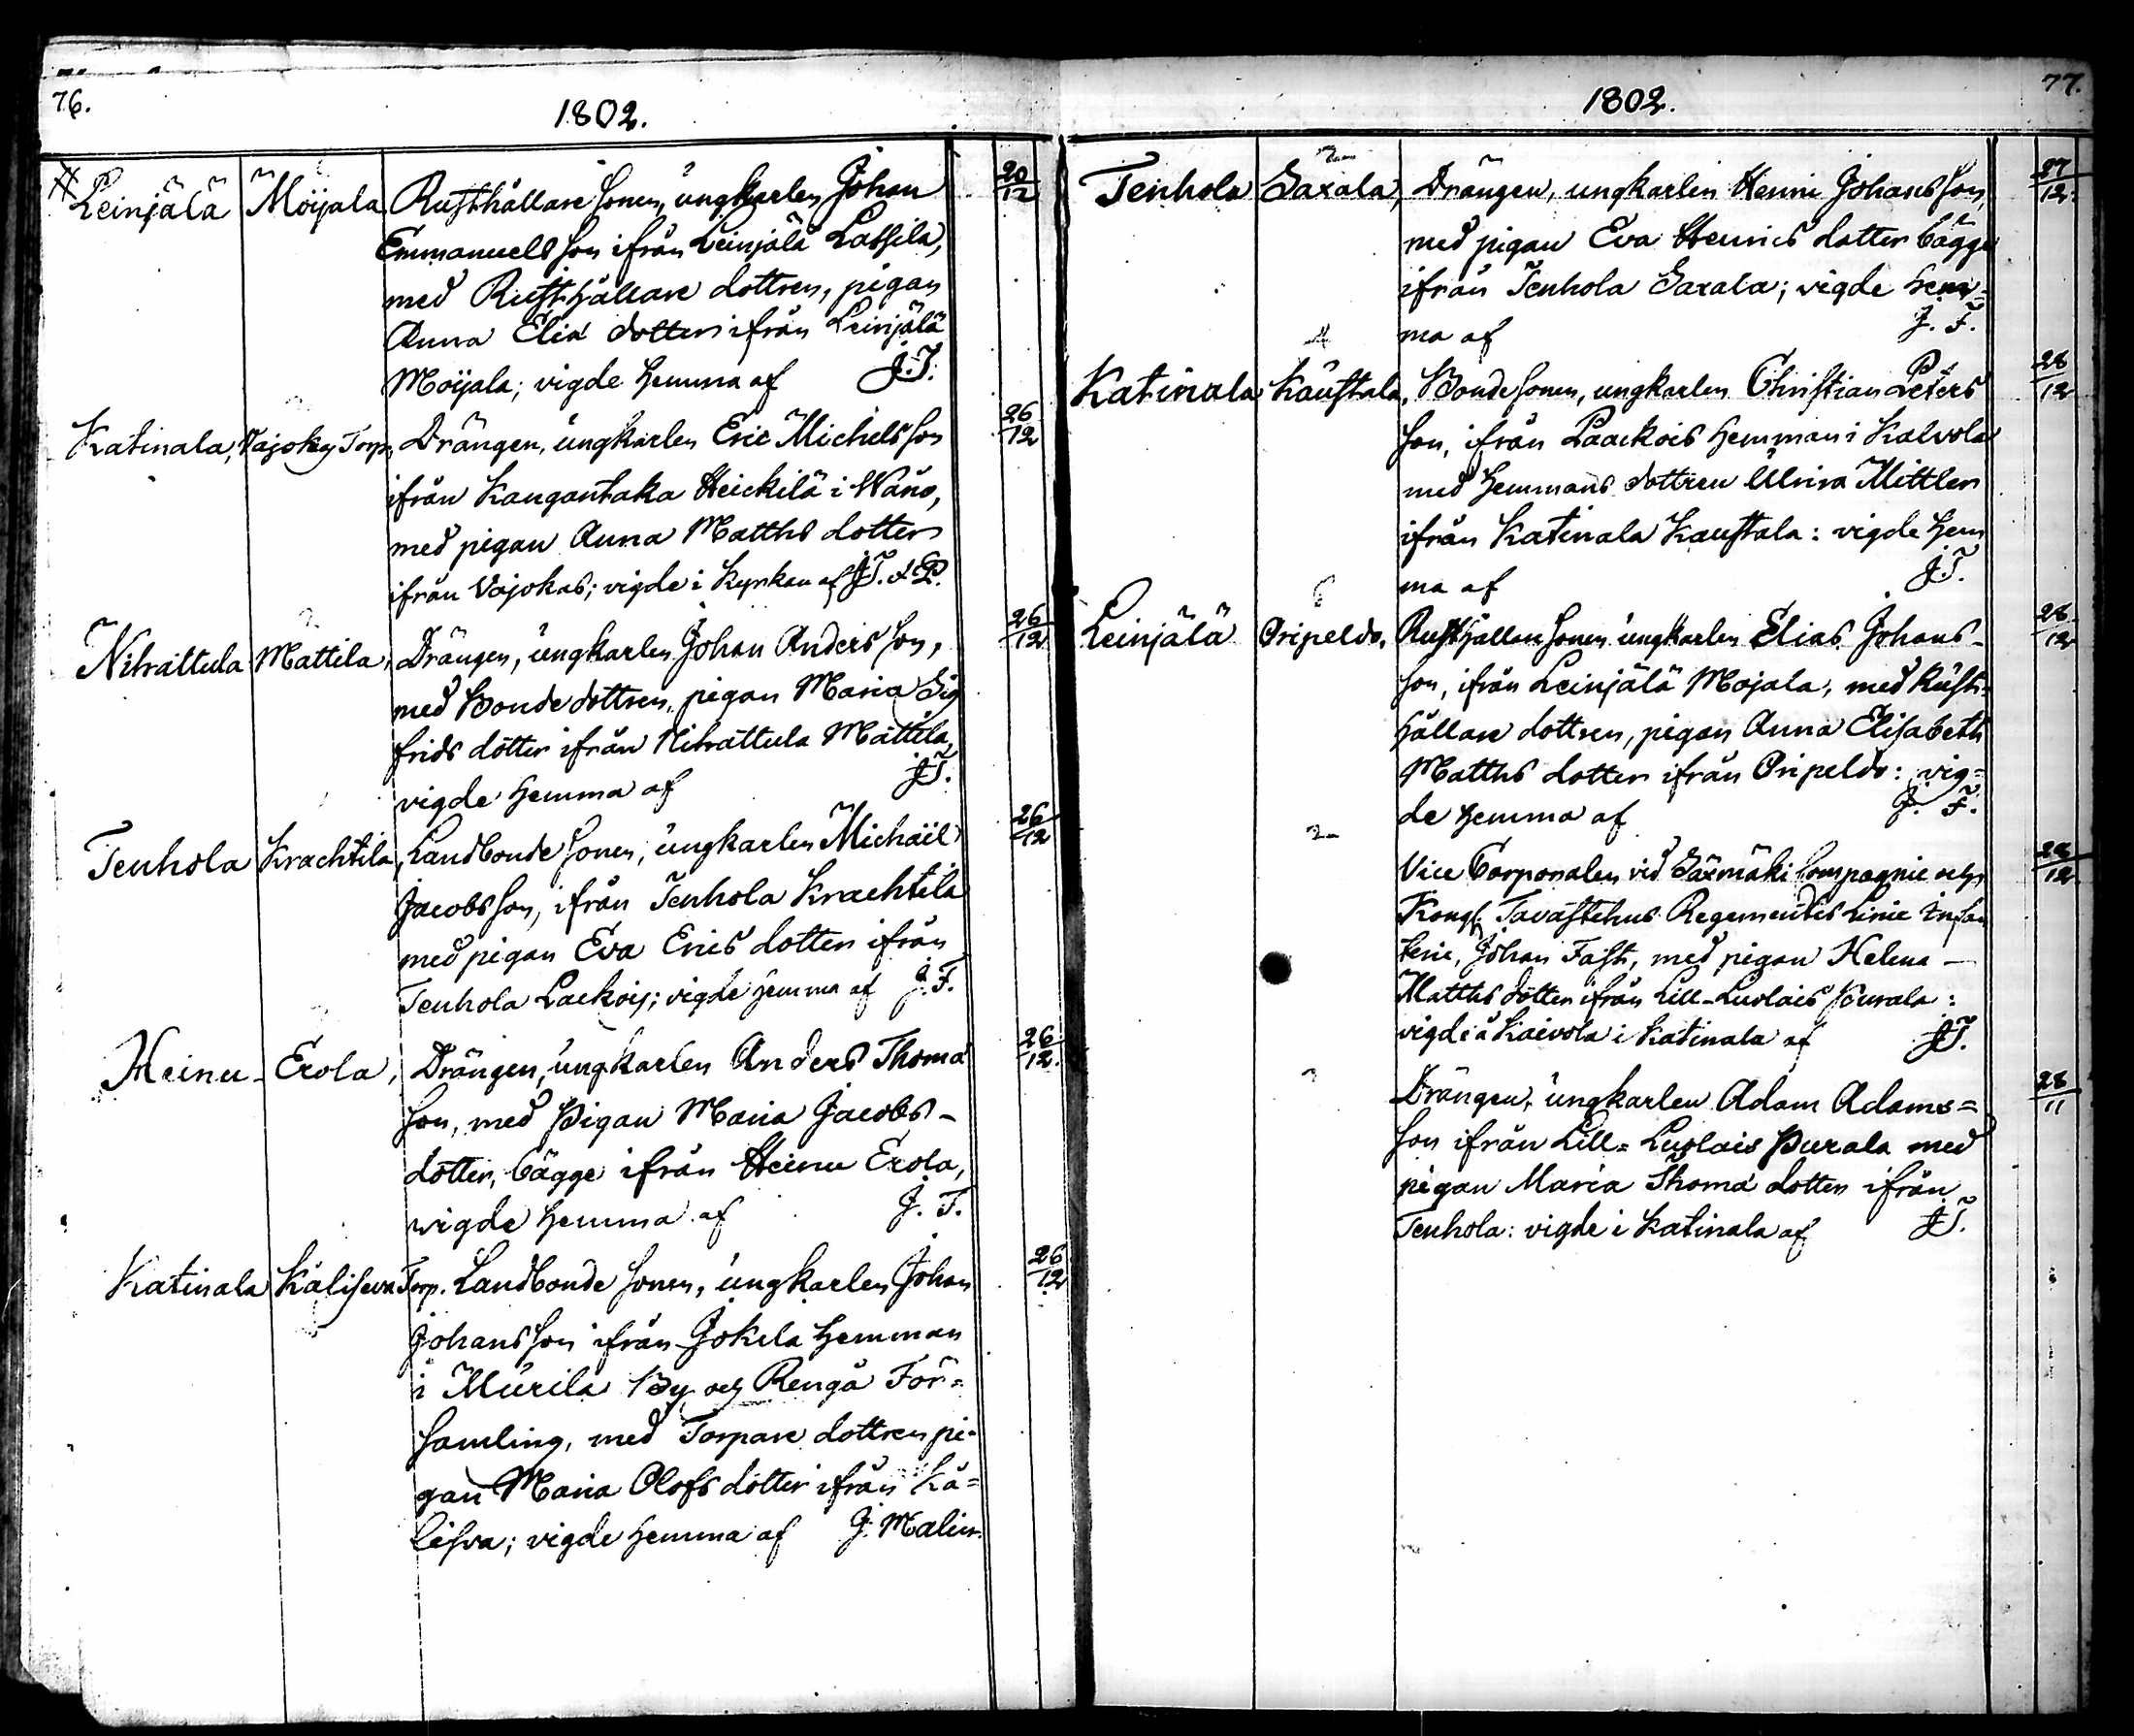 76.
1802.
Leinjälä Moijala Rusthållare sonen, ungkarlen Johan 20/12
Emmanuels son ifrån Leinjälä Lassila,
med Rusthållare dottren, pigan
Anna Eliæ dotter ifrån Leinjälä
Moijala; vigde hemma af J.T.
Katinala, Vajokas Torp, Drängen, ungkarlen Eric Michels son 26/12
ifrån Kangantaka Heickilä i Wåno,
med pigan Anna Matths dotter
ifrån Vajokas; vigde i Kyrkan af J.T.
Nihattula Mattila, Drängen, ungkarlen Johan Anders son, 26/12
med Bonde dottren, pigan Maria Sig
frids dotter ifrån Nihattula Mattila
vigde hemma af J.T.
Tenhola Krachtila, Landbonde sonen, ungkarlen Michaël 26/12
Jacobs son, ifrån Tenhola Krachtila
med pigan Eva Erics dotter ifrån
Tenhola Lackois; vigde hemma af J.T.
Heinu Erola, Drängen, ungkarlen Anders Thomæ 26/12.
son, med Pigan Maria Jacobs-
dotter, bägge ifrån Heinu Erola,
vigde hemma af J.T.
Katinala Käliseva Torp. Landbonde sonen, ungkarlen Johan 26/12
Johans son ifrån Jokela Hemman
i Murila By och Rengå För=
samling, med Torpare dottren pi-
gan Maria Olofs dotter ifrån Kä=
liseva; vigde hemma af J. Malin
77.
1802.
Tenhola Saxala, Drängen, ungkarlen Henric Johans son, 27/12.
med pigan Eva Henrics dotter bägge
ifrån Tenhola Saxala; vigde hem=
ma af J.T.
Katinala Kaustala, Bonde sonen, ungkarlen Christian Peters 28/12
son, ifrån Laackois Hemman i Kalvola
med Hemmans dottren Ulrica Mittler
ifrån Katinala Kaustala: vigde hem
ma af J.T.
Leinjälä Oripeldo, Rusthållare sonen ungkarlen Elias Johans- 28/12
son, ifrån Leinjälä Mojala, med Rust=
hållare dottren, pigan Anna Elisabeth
Matths dotter ifrån Oripeldo: vig=
de hemma af J.T.
Vice Corporalen vid Säxmäki Compagnie och 28/12
Kongl. Tavastehus Regementes Linie Infan
terie, Johan Fast, med pigan Helena -
Matths dotter ifrån Lill-Luolais Purala:
vigde å Kaivola i Katinala af J.T.
Drängen, ungkarlen Adam Adams= 28/11
son ifrån Lill=Luolais Purala med
pigan Maria Thomæ dotter ifrån
Tenhola: vigde i Katinala af J.T.